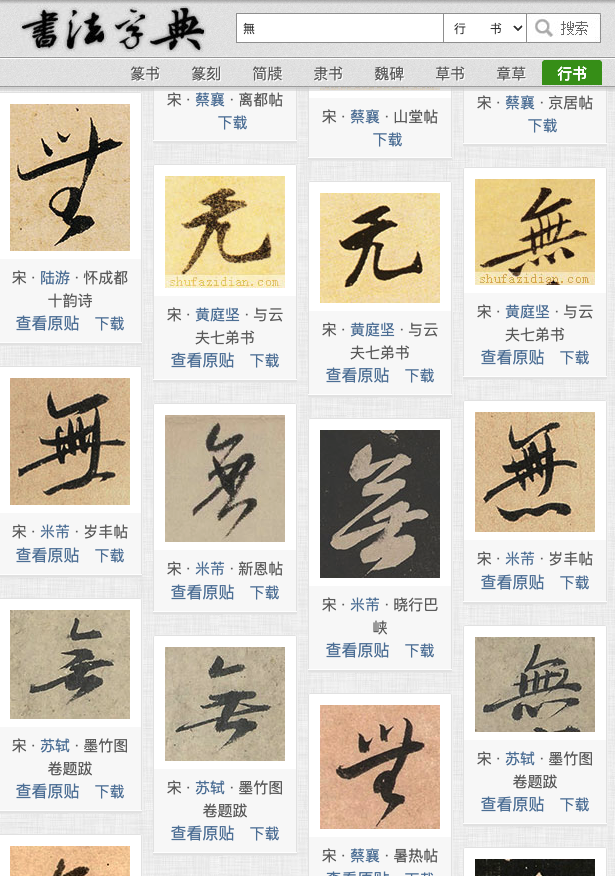 書法字典
無
行 書
搜索
篆书 篆刻 简牍 隶书 魏碑 草书 章草 行书
無
宋 · 陆游 · 怀成都
十韵诗
查看原贴 下载
無
宋 · 米芾 · 岁丰帖
查看原贴 下载
無
宋 · 苏轼 · 墨竹图
卷题跋
查看原贴 下载
宋 · 蔡襄 · 离都帖
下载
无
shufazidian.com
宋 · 黄庭坚 · 与云
夫七弟书
查看原贴 下载
無
宋 · 米芾 · 新恩帖
查看原贴 下载
無
宋 · 苏轼 · 墨竹图
卷题跋
查看原贴 下载
宋 · 蔡襄 · 山堂帖
下载
无
宋 · 黄庭坚 · 与云
夫七弟书
查看原贴 下载
無
宋 · 米芾 · 晓行巴
峡
查看原贴 下载
無
宋 · 蔡襄 · 暑热帖
查看原贴 下载
宋 · 蔡襄 · 京居帖
下载
無
shufazidian.com
宋 · 黄庭坚 · 与云
夫七弟书
查看原贴 下载
無
宋 · 米芾 · 岁丰帖
查看原贴 下载
無
宋 · 苏轼 · 墨竹图
卷题跋
查看原贴 下载